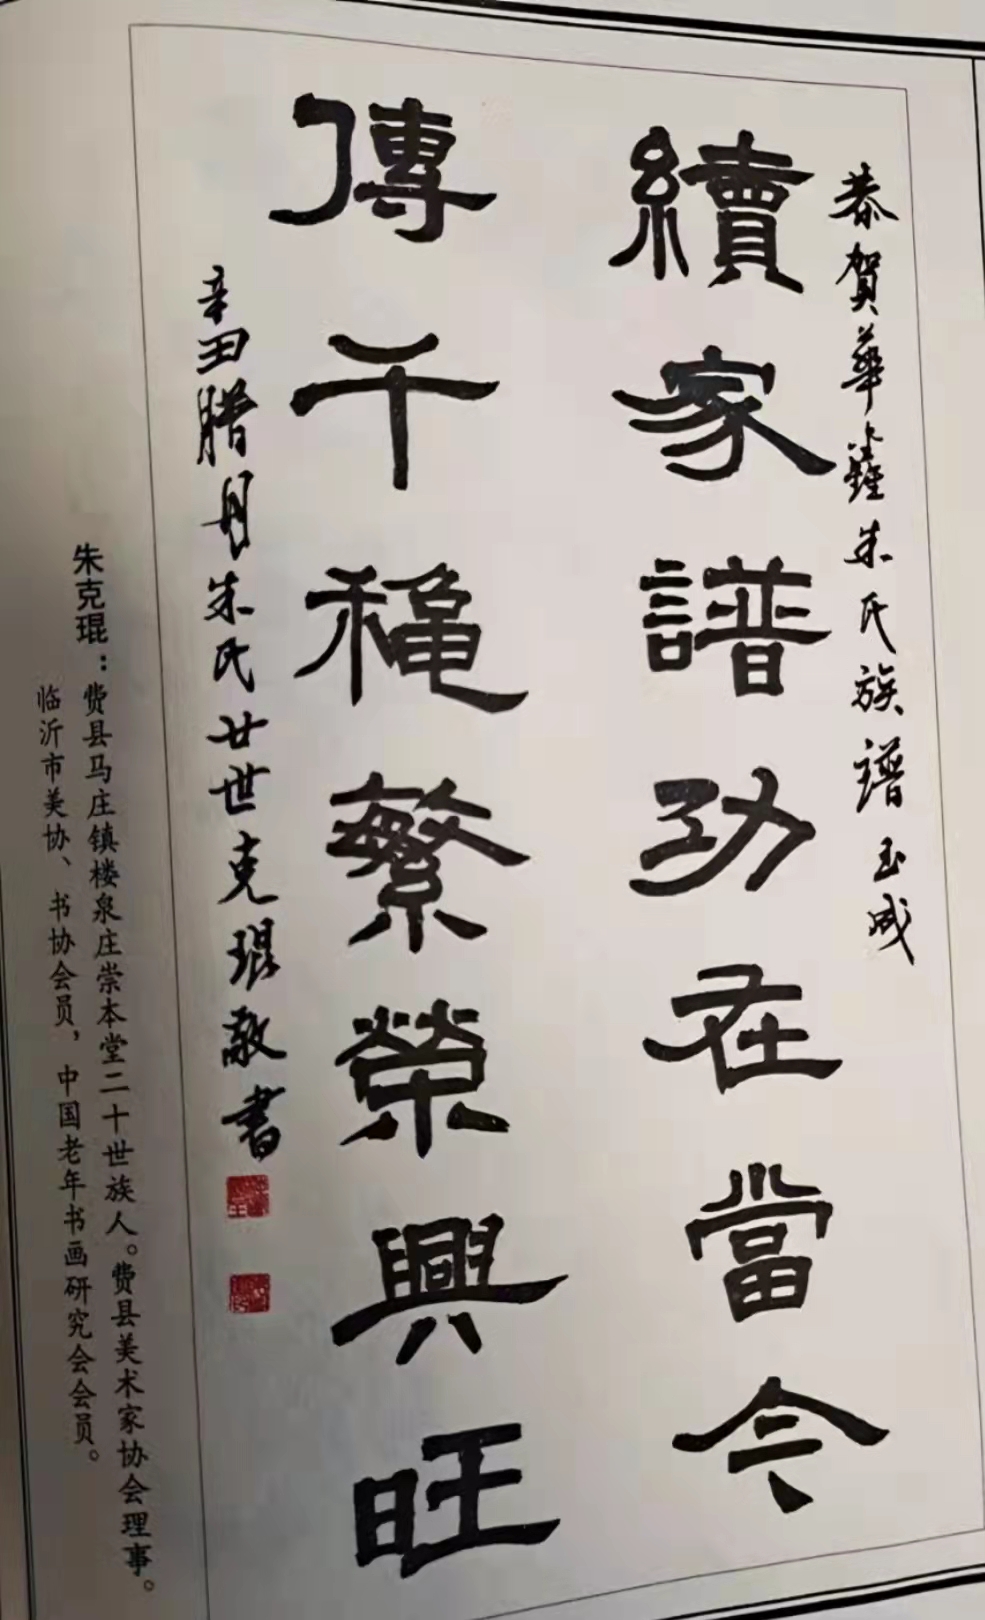 恭賀華鑫朱氏族譜玉成
續家譜功在當今
傳千穐繁榮興旺
辛丑腊月朱氏廿世克琨敬書
朱克琨：费县马庄镇楼泉庄崇本堂二十世族人。费县美术家协会理事。
临沂市美协、书协会员，中国老年书画研究会会员。